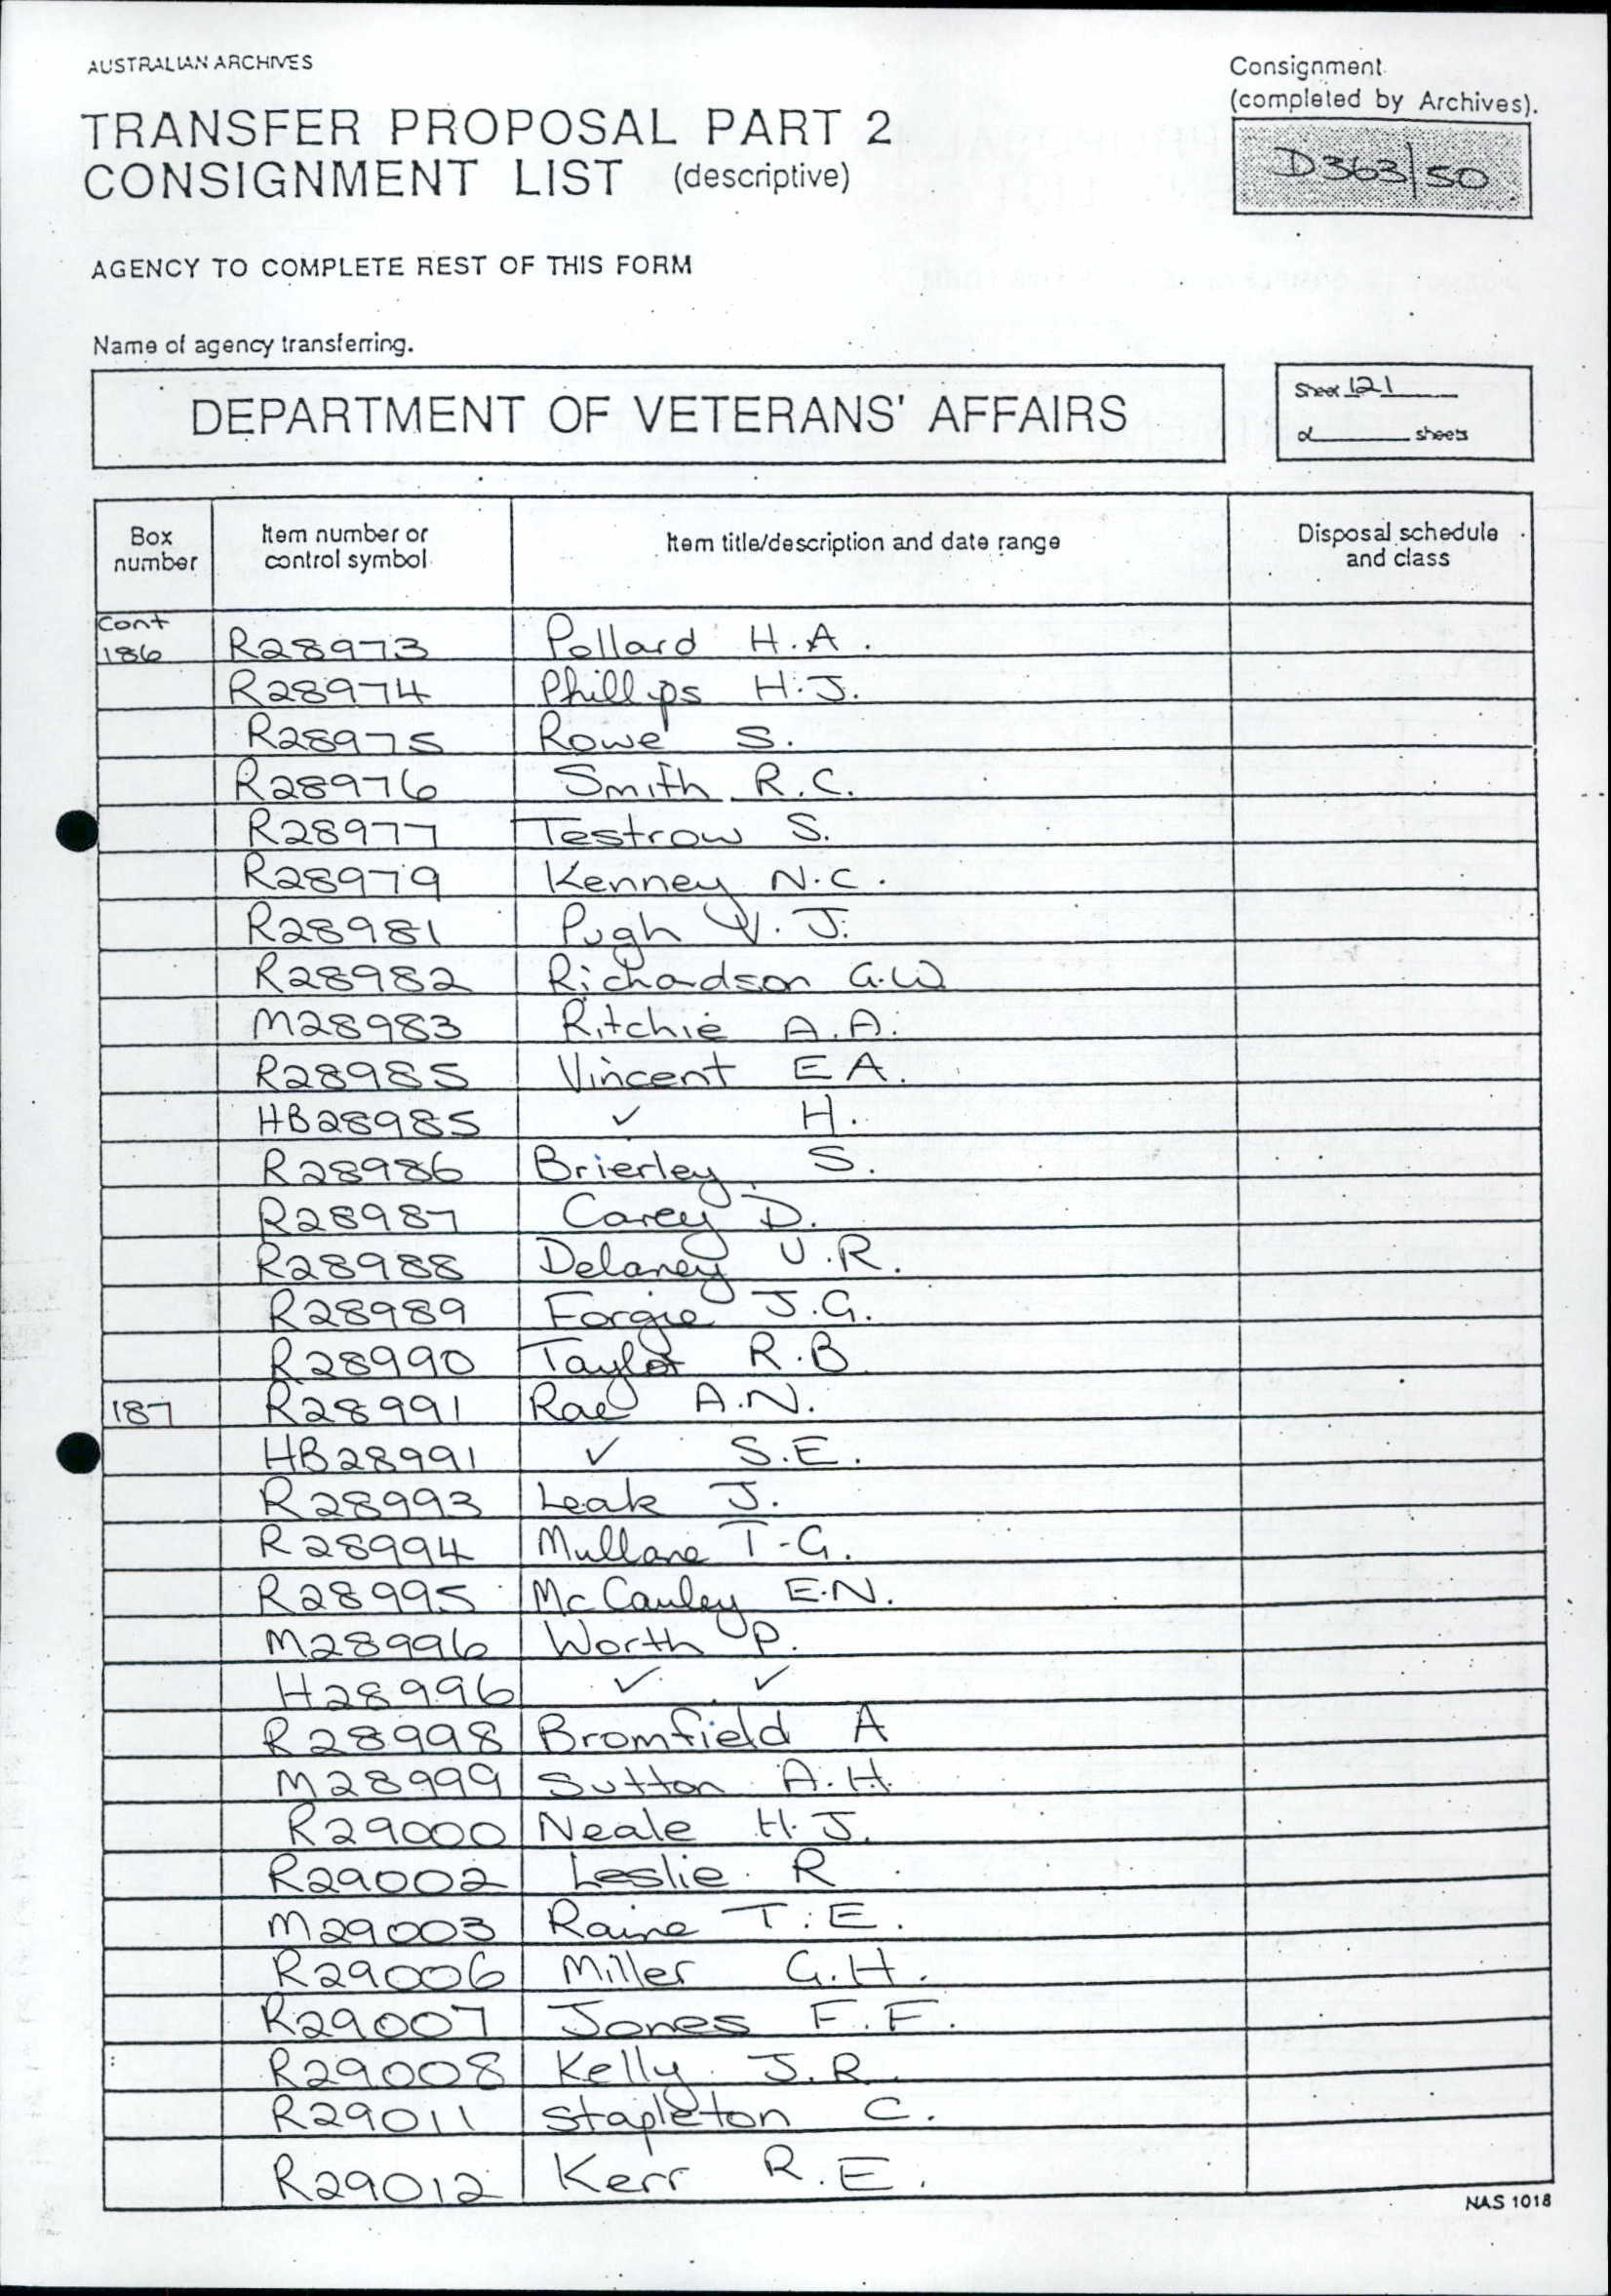 AUSTRALIAN ARCHIVES
Consignment
(completed by Archives).
TRANSFER PROPOSAL PART 2
CONSIGNMENT LIST (descriptive)
D363/50
AGENCY TO COMPLETE REST OF THIS FORM
Name of agency transferring.
DEPARTMENT OF VETERANS' AFFAIRS
Sheet 121
of sheets
Box number
Item number or control symbol
Item title/description and date range
Disposal schedule and class
Cont
186 R28973 Pollard H.A.
R28974 Phillips H.J.
R28975 Rowe S.
R28976 Smith R.C.
R28977 Testrow S.
R28979 Kenney N.C.
R28981 Pugh V.J.
R28982 Richardson G.W
M28983 Ritchie A.A.
R28985 Vincent E A.
HB28985 ✓ H.
R28986 Brierley S.
R28987 Carey D.
R28988 Delaney U.R.
R28989 Forgie J.G.
R28990 Taylor R.B
187 R28991 Rae A.N.
HB28991 ✓ S.E.
R28993 Leak J.
R28994 Mullane T-G.
R28995 McCauley E.N.
M28996 Worth P.
H28996 ✓ ✓
R28998 Bromfield A
M28999 Sutton A.H.
R29000 Neale H.J.
R29002 Leslie R
M29003 Raine T.E.
R29006 Miller G.H.
R29007 Jones F.F.
R29008 Kelly J.R.
R29011 Stapleton C.
R29012 Kerr R.E.
NAS 1018